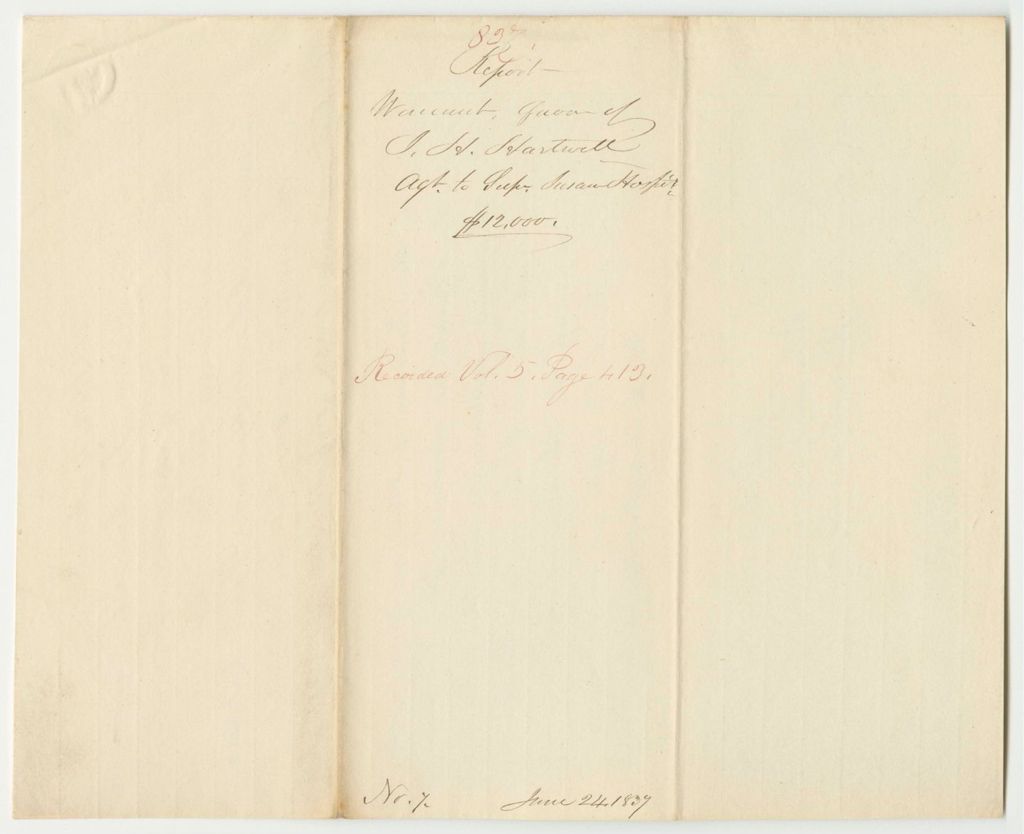 Report
Warrant, favor of
J. H. Hartwell
Agt. to Supr. Insane Hospit.
$12,000.
Recorded Vol. 5. Page 413.
No. 7. June 24, 1839